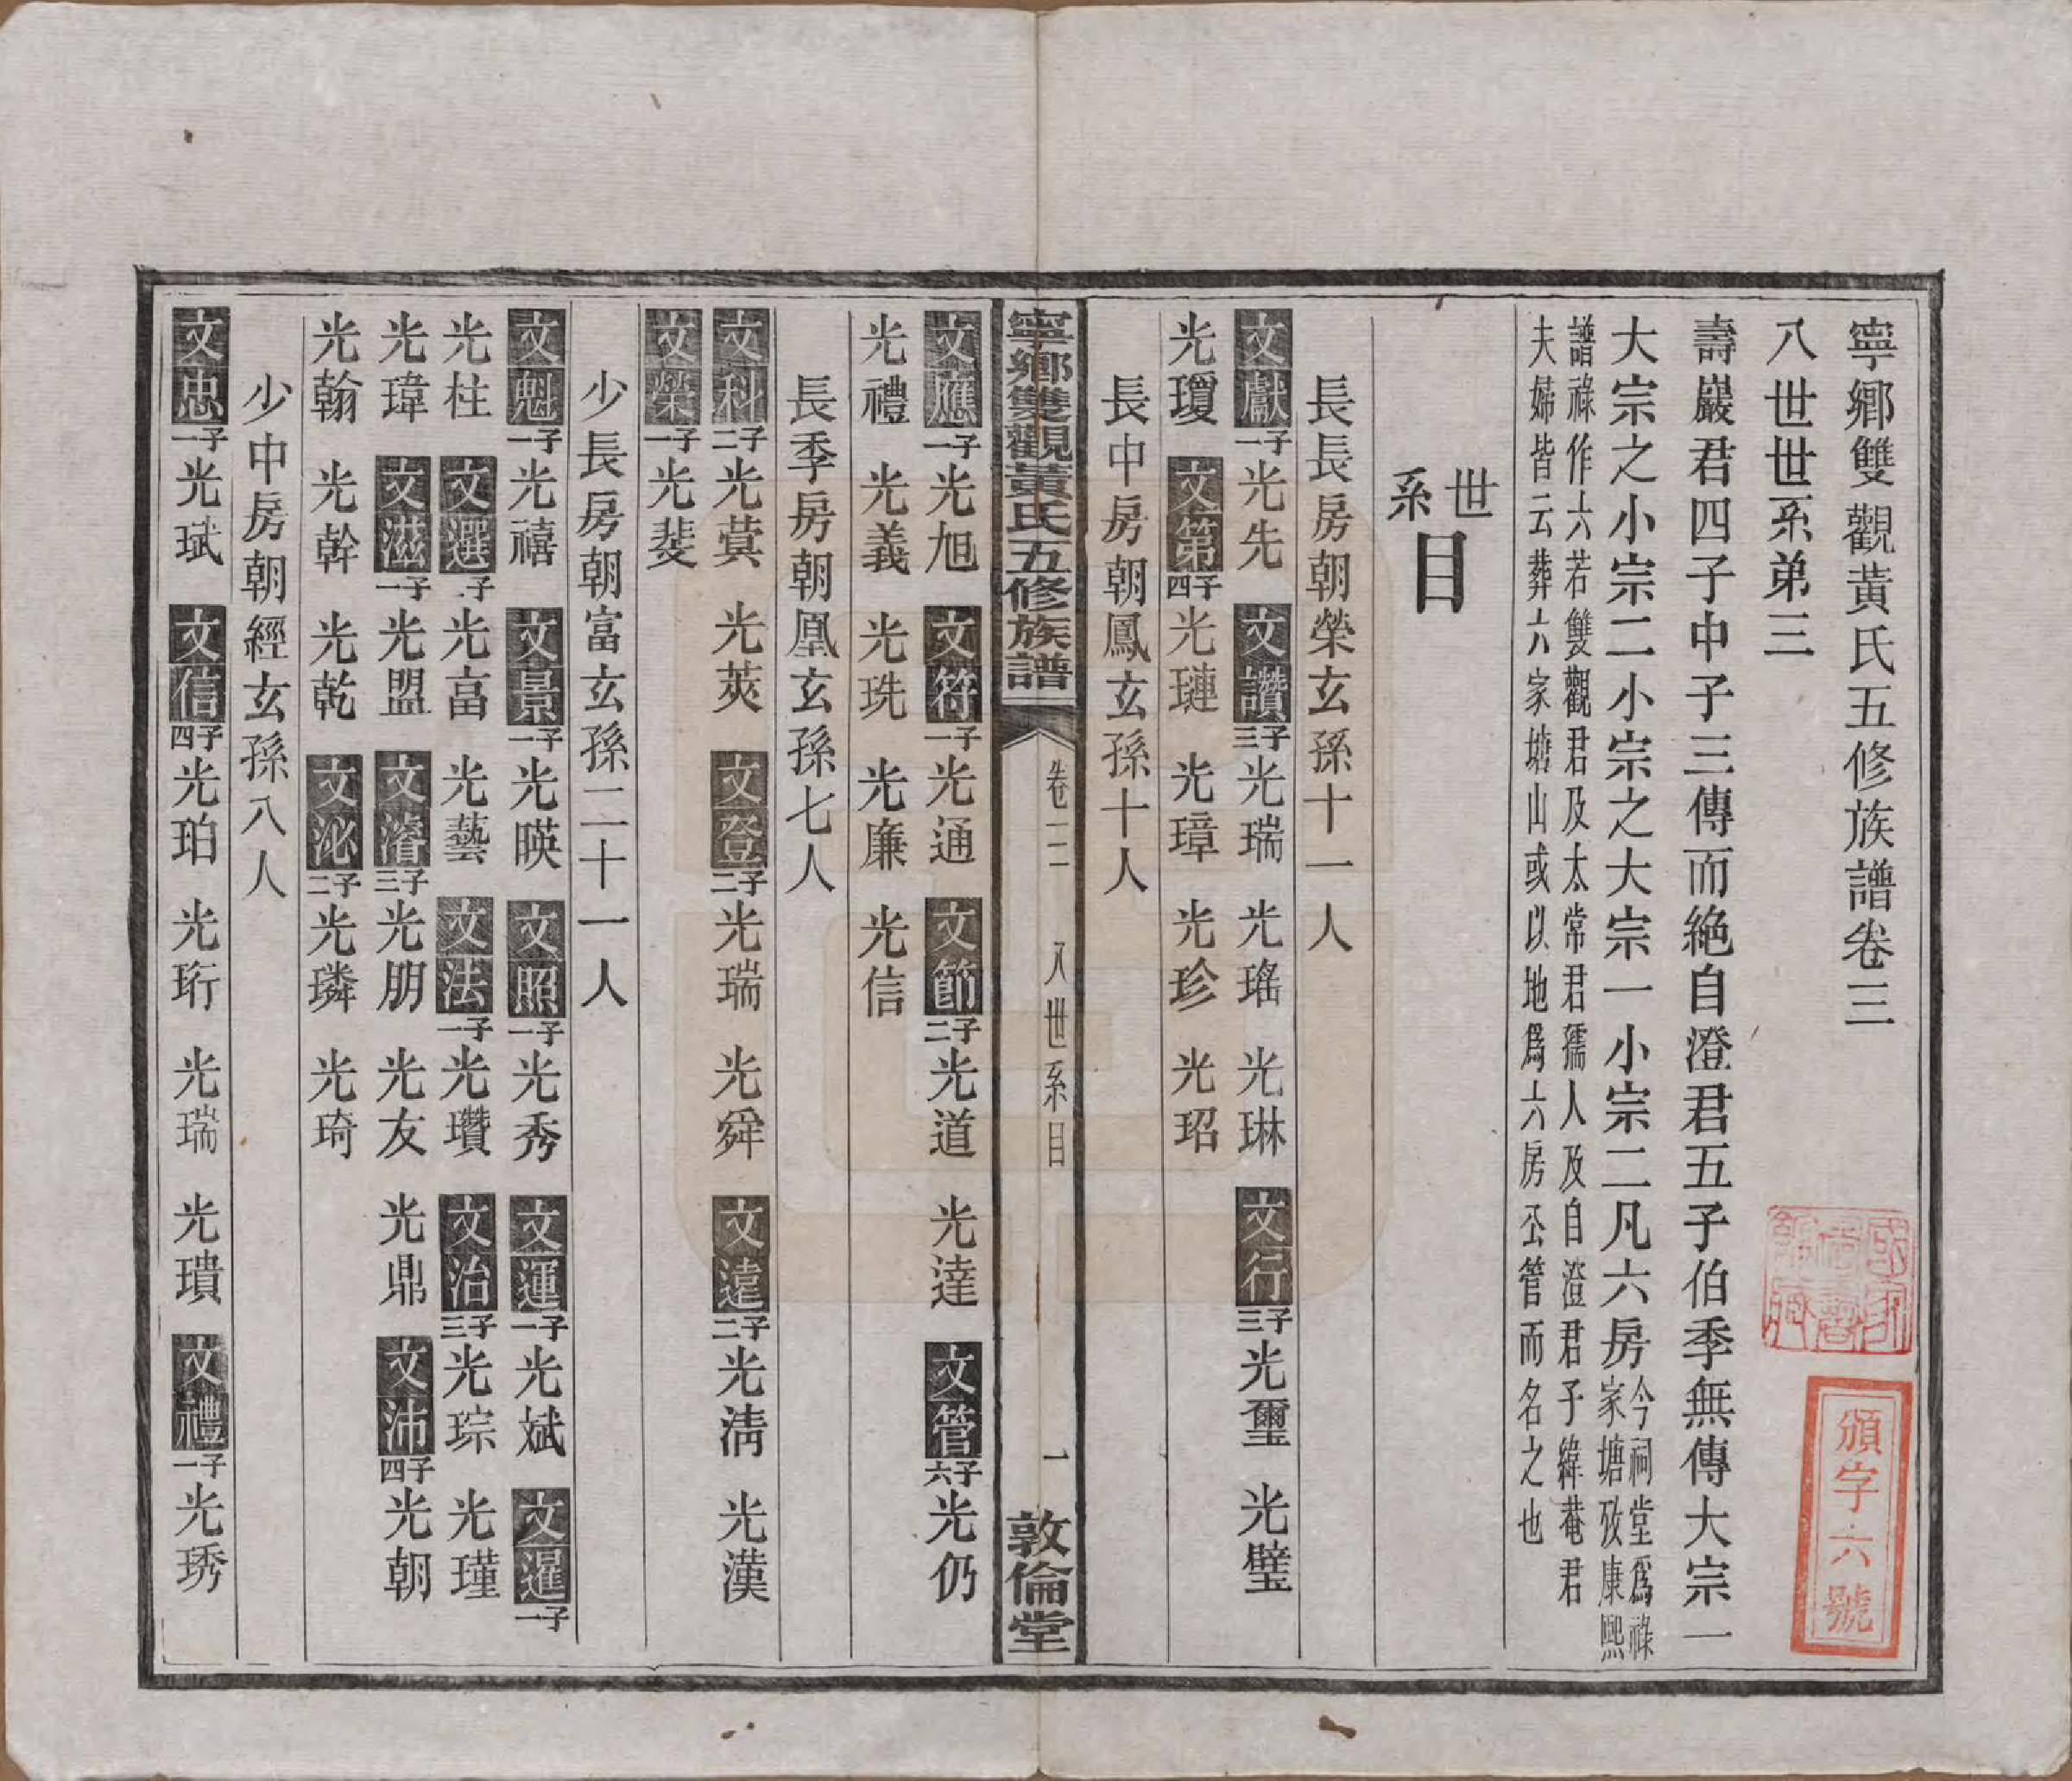 寧鄉雙觀黃氏五修族譜卷三
八世世系弟三
壽巖君四子中子三傳而絶自澄君五子伯季無傳大宗一
大宗之小宗二小宗之大宗一小宗二凡六房今祠堂爲祿家塘攷康熙
譜祿作六若雙觀君及太常君孺人及自澄君子緯菴君
夫婦皆云葬六家塘山或以地爲六房公管而名之也
世系目
長長房朝榮玄孫十一人
文獻一子光先 文讚三子光瑞 光瑤 光琳 文行三子光璽 光璧
光瓊 文第四子光璉 光璋 光珍 光玿
長中房朝鳳玄孫十人
文應一子光旭 文符一子光通 文節二子光道 光達 文管六子光仍
光禮 光義 光珗 光廉 光信
長季房朝凰玄孫七人
文科二子光蓂 光莢 文登二子光瑞 光舜 文遠二子光淸 光漢
文榮一子光斐
少長房朝富玄孫二十一人
文魁一子光禧 文景一子光暎 文照一子光秀 文運一子光斌 文暹一子
光柱 文選二子光富 光藝 文法一子光瓚 文治三子光琮 光瑾
光瑋 文滋一子光盟 文濬三子光朋 光友 光鼎 文沛四子光朝
光翰 光幹 光乾 文泌二子光璘 光琦
少中房朝經玄孫八人
文忠一子光珷 文信四子光珀 光珩 光瑞 光璝 文禮一子光琇
寧鄉雙觀黃氏五修族譜
卷三 八世系目 一
敦倫堂
頒字六號